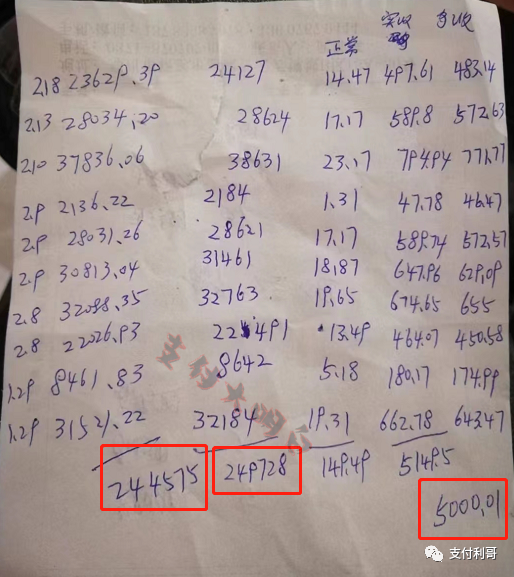 正常 实收 多收
2.18 23629.39 24127 14.47 497.61 483.14
2.13 28034.20 28624 17.17 589.8 572.63
2.10 37836.06 38631 23.17 794.94 771.77
2.9 2136.22 2184 1.31 47.78 46.47
2.9 28031.26 28621 17.17 589.74 572.57
2.9 30813.04 31461 18.87 647.96 629.09
2.8 32088.35 32763 19.65 674.65 655
2.8 22026.93 22491 13.49 464.07 450.58
1.29 8461.83 8642 5.18 180.17 174.99
1.29 31521.22 32184 19.31 662.78 643.47
244575 249728 149.49 5149.5
5000.01
支付利哥